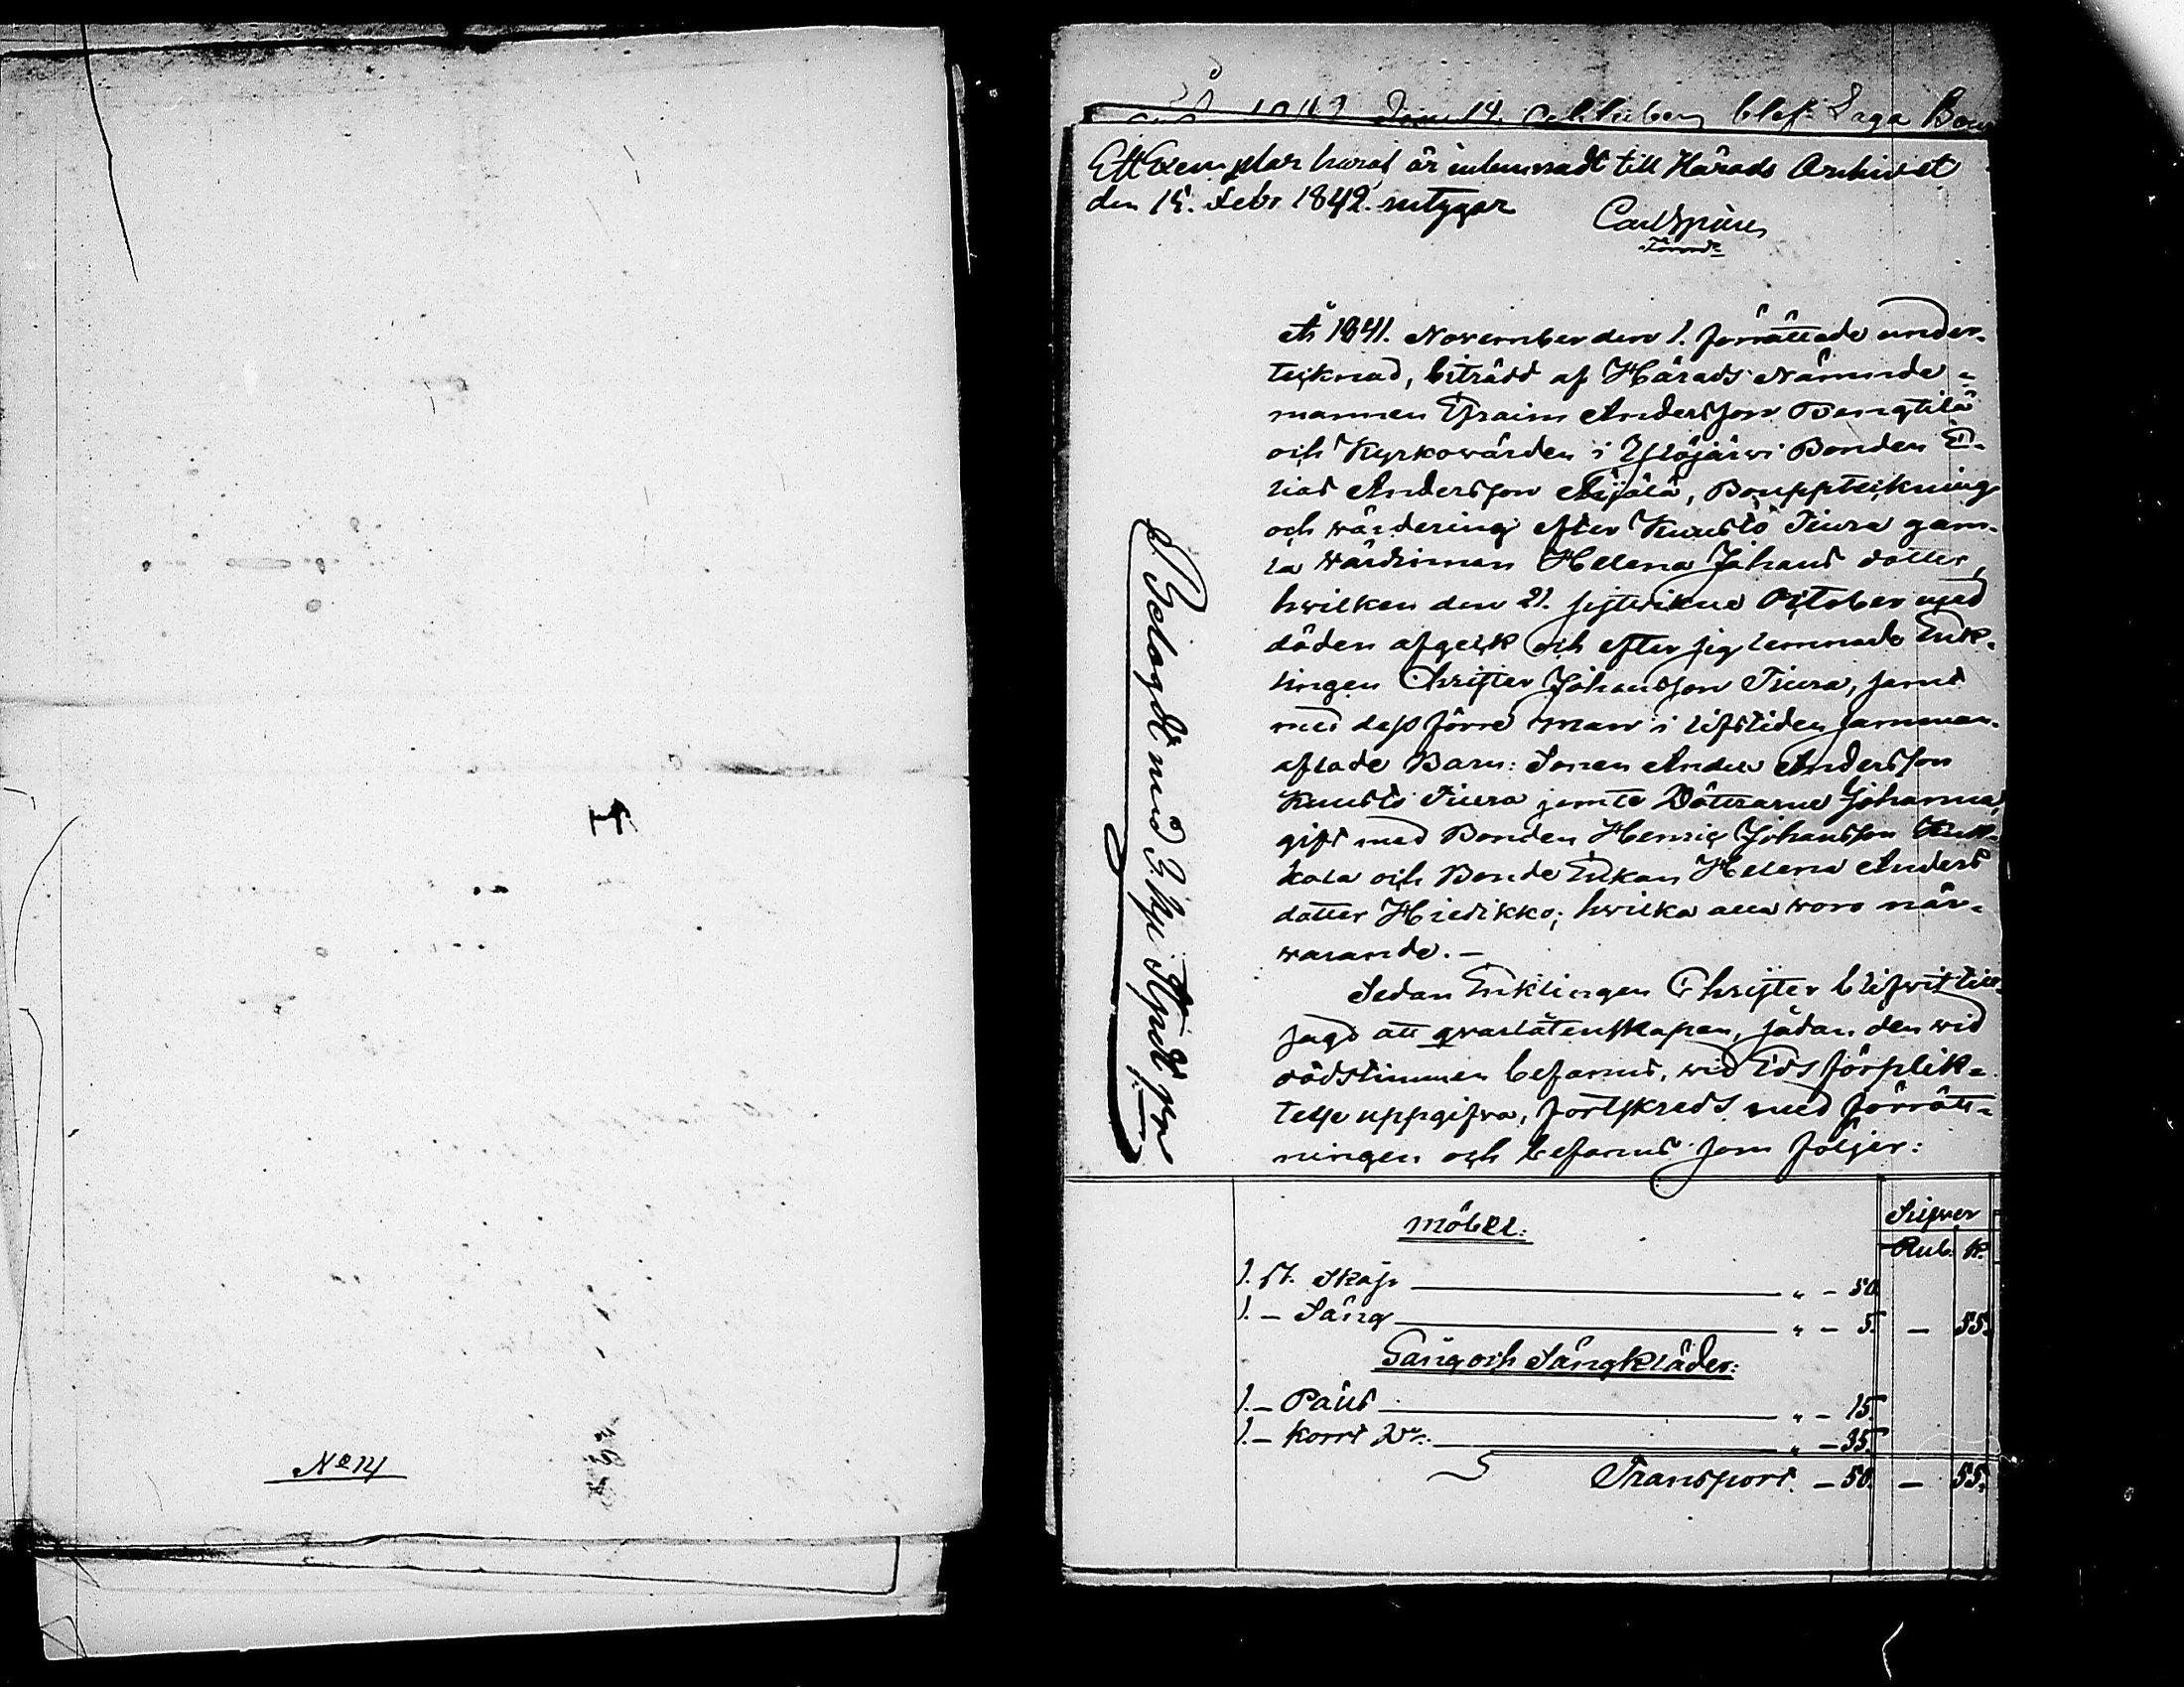 No 14
den 14. October blef Laga Bou
Ett Exemplar häraf är inlemnadt till Härads Archivet
den 15. Febr 1842. intygar
Carl
År 1841. November den 1. förrättade under-
tecknad, biträdd af Härads Nämnde-
mannen Efraim Andersson Bengtilä
och Kyrkowärden i Ylöjärwi Bonden E-
lias Andersson Äijälä, Bouppteckning
och wärdering efter Kuusto Tiura gam-
la Wärdinnan Helena Johans dotter,
hwilken den 21. sistwikne October med
döden afgick och efter sig lemnade Enk-
lingen Christer Johansson Tiura, samt
med dess förre man i lifstiden samman-
aflade Barn: Sonen Anders Andersson
Kuusto Tiura jemte Döttrarne Johanna,
gift med Bonden Henric Johansson
kala och Bonde Enkan Helena Anders
dotter Hiedikko; hwilka alla woro när-
warande. –
Sedan Enklingen Christer blifwit till-
sagd att qwarlåtenskapen, sådan den wid
dödstimmen befanns, wid Eds förplik-
telse uppgifwa, fortskreds med förrätt-
ningen och befanns som följer:
Belagdt med
Silfwer
Möbel:
Rub. k.
1. st. Skåp " - 50
1. - Säng " - 5. - 55.
Gång och Sängkläder:
1. - Päls " - 15
1. - Kort " - 35.
Transport. - 50. - 55.